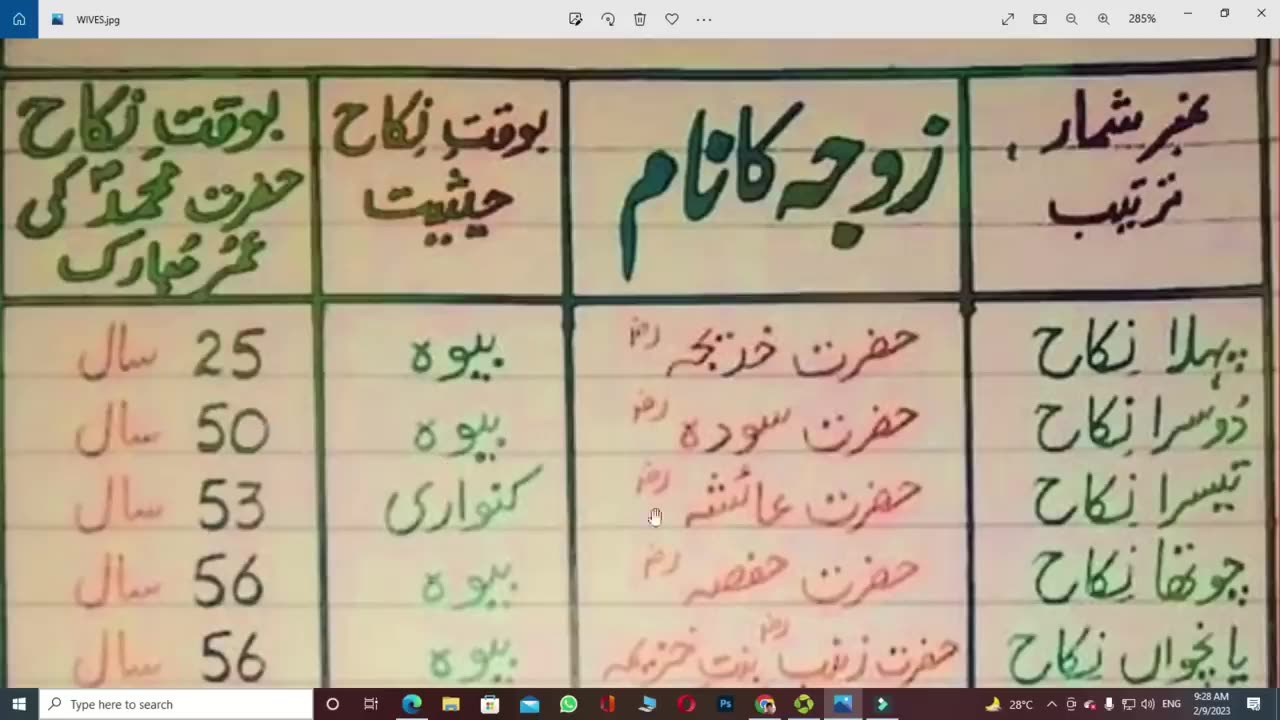 WIVES.jpg
285%
نمبر شمار، ترتیب
زوجہ کا نام
بوقتِ نِکاح حیثیت
بوقتِ نِکاح حضرت محمدؐ کی عُمر مُبارک
پہلا نِکاح حضرت خدیجہ رضہ بیوہ 25 سال
دُوسرا نِکاح حضرت سودہ رضہ بیوہ 50 سال
تیسرا نِکاح حضرت عائشہ رضہ کنواری 53 سال
چوتھا نِکاح حضرت حفصہ رضہ بیوہ 56 سال
پانچواں نِکاح حضرت زینب رضہ بنت خزیمہ بیوہ 56 سال
Type here to search
28°C
9:28 AM
2/9/2023